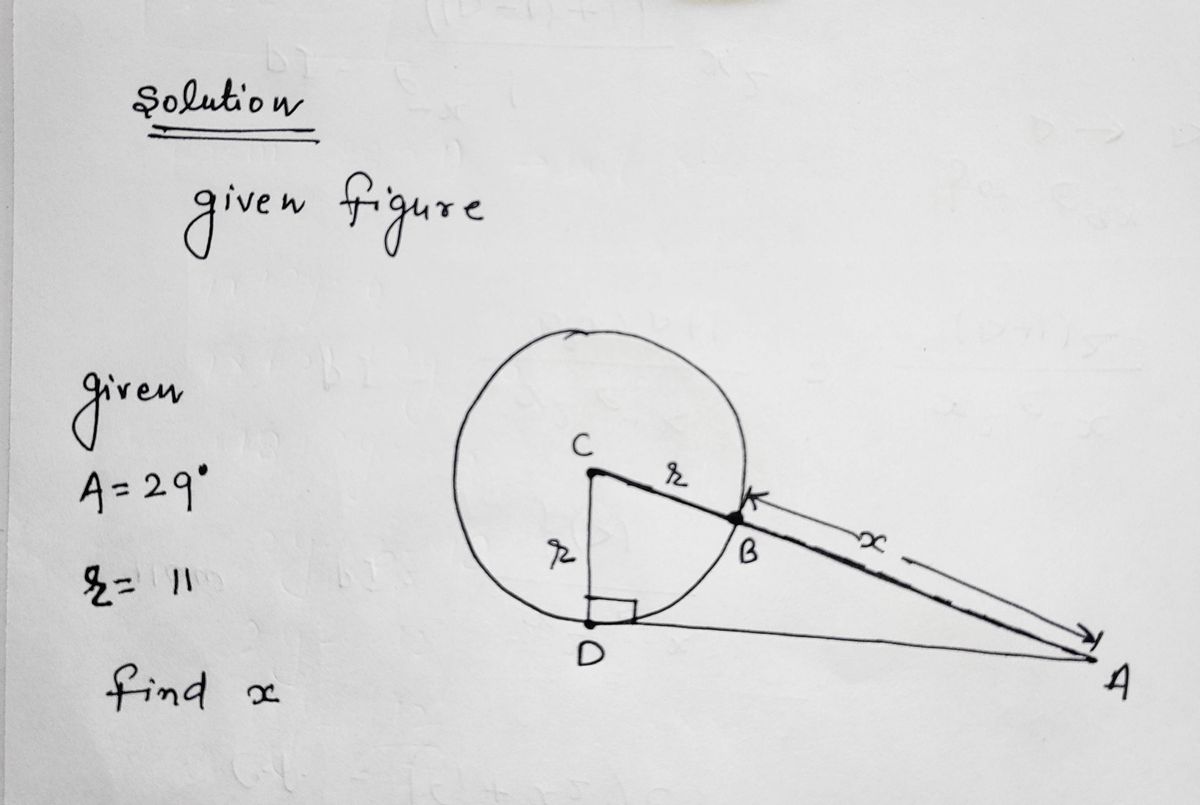 Solution
given figure
given
A = 29°
r = 11
find x
C
r
r
B
x
D
A